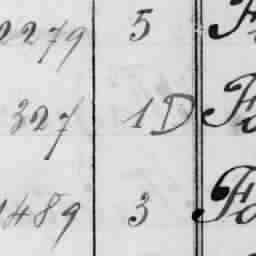 2279 5 F
327 1D Fo
1489 3 Fo